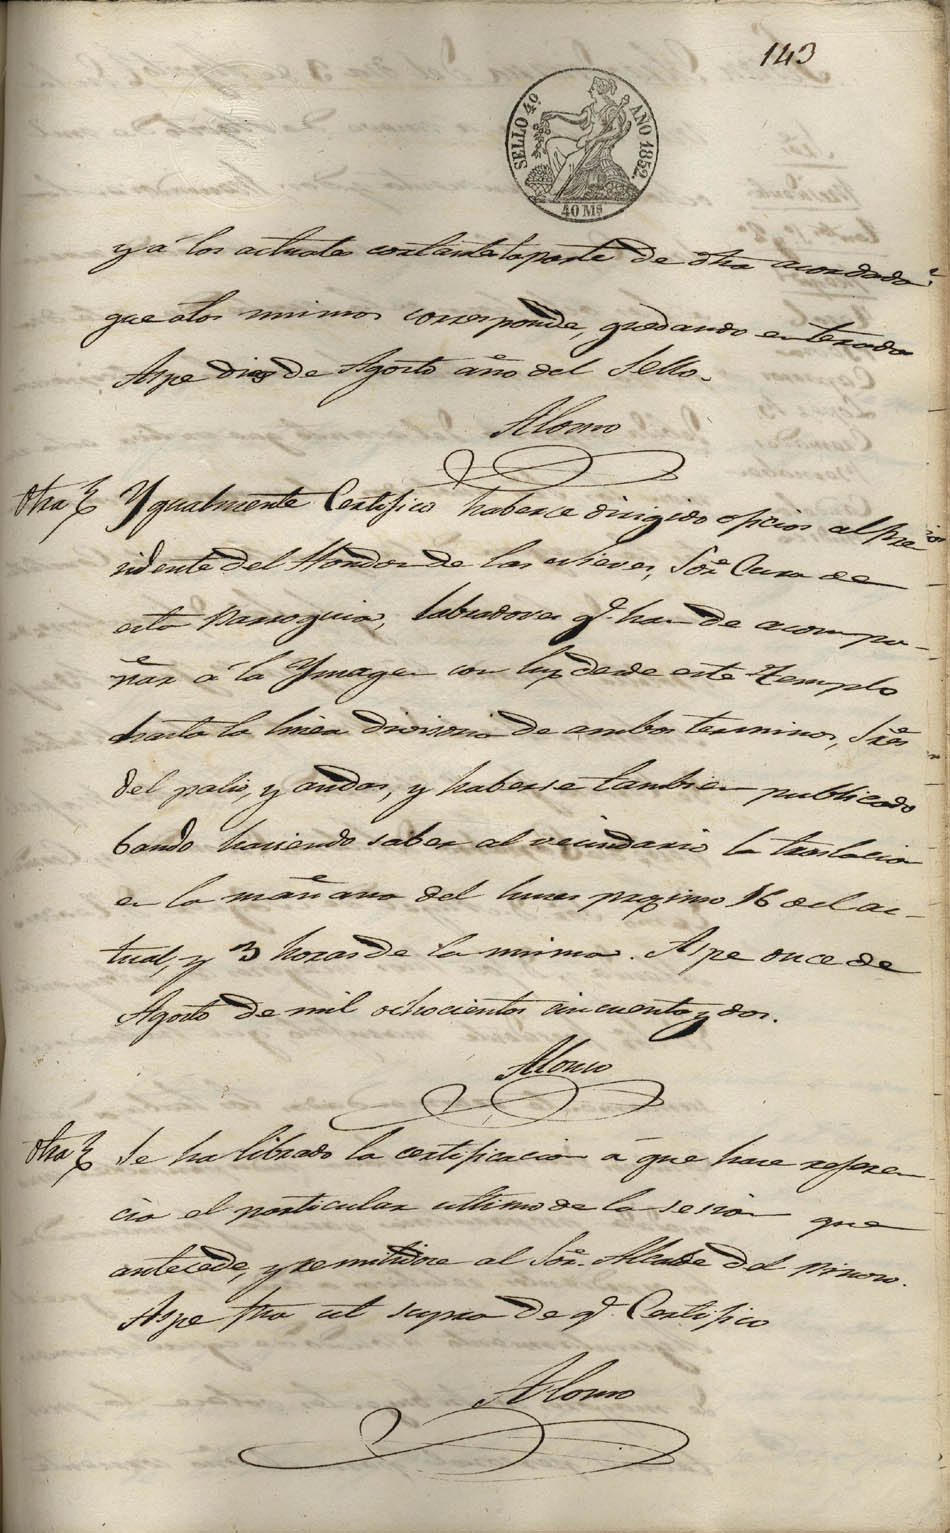 143
SELLO 4º AÑO 1852.
40 Ms
y á los actuales la parte de otra acordado
que á los mismos corresponde, quedando enterado
Aspe diez de Agosto año del Sello.
Alonso
Otra Ygualmente Certifico haberse dirigido oficios al Pre
sidente del Hondon de las Nieves, Sor. Cura de
esta Parroquia, labradores q.e han de acompa-
ñar á la Ymagen con luz desde este Templo
hasta la linea divisoria de ambos terminos, Sres
del palio, y andas, y haberse tambien publicado
bando haciendo saber al vecindario la traslacion
en la mañana del lunes proximo 16 del ac-
tual, y 3 horas de la misma. Aspe once de
Agosto de mil ochocientos cincuenta y dos.
Alonso
Otra Se ha librado la certificacion á que hace referen
cia el particular ultimo de la sesion que
antecede, y remitidose al Sor. Alcalde del Pinoso.
Aspe fha ut supra de q.e Certifico
Alonso